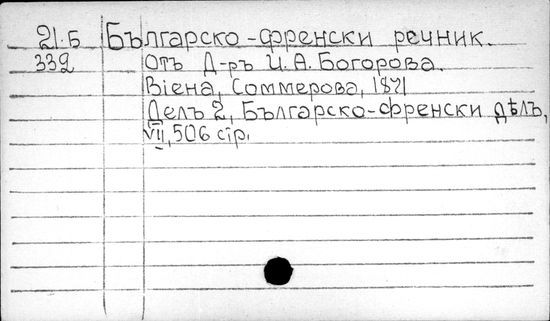 21.Б Българско-френски речник.
332 Отъ Д-ръ И. А. Богорова.
Віена, Соммерова, 1871
Делъ 2, Българско-френски дѣлъ,
VII, 506 стр.